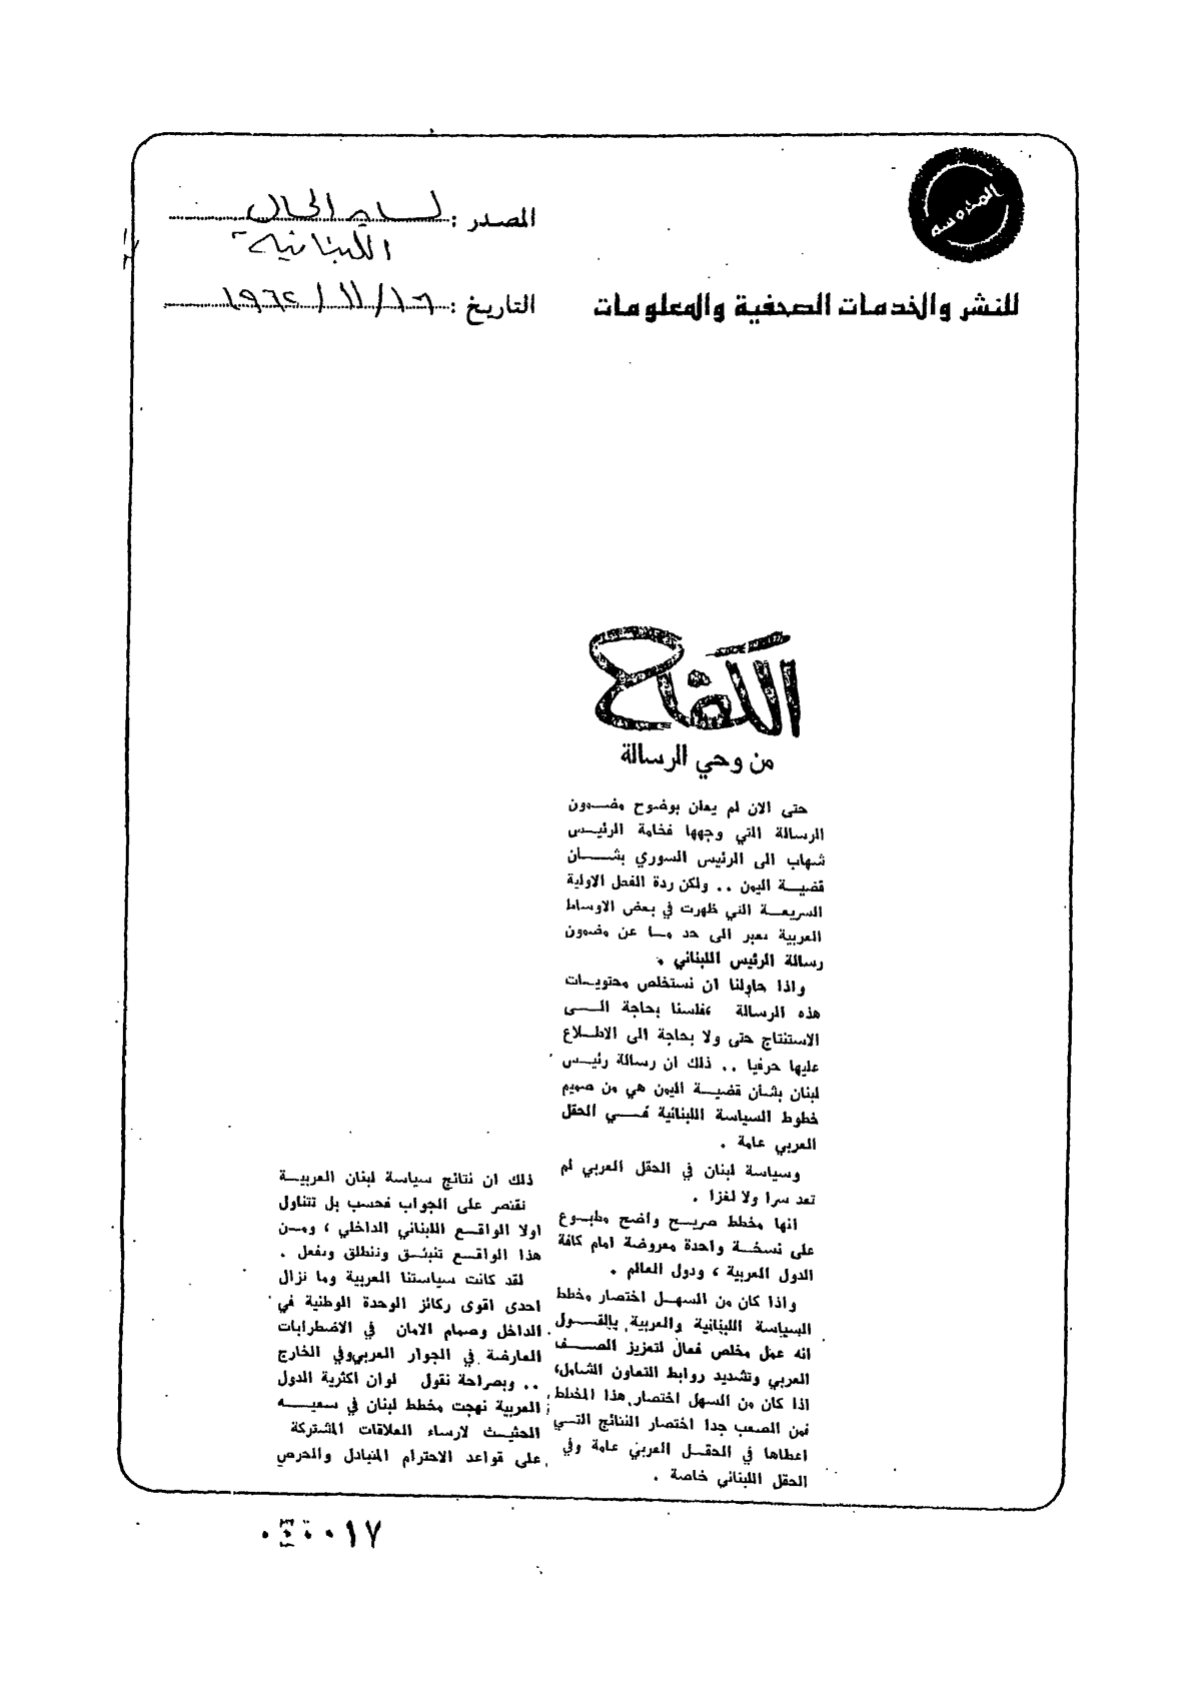 المحروسة
المصدر : لسان الحال
اللبنانية
للنشر والخدمات الصحفية والمعلومات
التاريخ : ١٦ / ١١ / ١٩٦٢
الكفاح
من وحي الرسالة
حتى الان لم يعلن بوضوح مضمون
الرسالة التي وجهها فخامة الرئيس
شهاب الى الرئيس السوري بشان
قضية اليمن .. ولكن ردة الفعل الاولية
السريعة التي ظهرت في بعض الاوساط
العربية تعبر الى حد ما عن مضمون
رسالة الرئيس اللبناني .
واذا حاولنا ان نستخلص محتويات
هذه الرسالة ، فلسنا بحاجة الى
الاستنتاج حتى ولا بحاجة الى الاطلاع
عليها حرفيا .. ذلك ان رسالة رئيس
لبنان بشأن قضية اليمن هي من صميم
خطوط السياسة اللبنانية في الحقل
العربي عامة .
وسياسة لبنان في الحقل العربي لم
تعد سرا ولا لغزا .
انها مخطط صريح واضح مطبوع
على نسخة واحدة معروضة امام كافة
الدول العربية ، ودول العالم .
واذا كان من السهل اختصار مخطط
السياسة اللبنانية والعربية بالقول
انه عمل مخلص فعال لتعزيز الصف
العربي وتشديد روابط التعاون الشامل،
اذا كان من السهل اختصار هذا المخطط
فمن الصعب جدا اختصار النتائج التي
اعطاها في الحقل العربي عامة وفي
الحقل اللبناني خاصة .
ذلك ان نتائج سياسة لبنان العربية
تقتصر على الجواب فحسب بل تتناول
اولا الواقع اللبناني الداخلي ، ومن
هذا الواقع تنبثق وتنطلق وتفعل .
لقد كانت سياستنا العربية وما تزال
احدى اقوى ركائز الوحدة الوطنية في
الداخل وصمام الامان في الاضطرابات
العارضة في الجوار العربي وفي الخارج
.. وبصراحة نقول لوان اكثرية الدول
العربية نهجت مخطط لبنان في سعيه
الحثيث لارساء العلاقات المشتركة
على قواعد الاحترام المتبادل والحرص